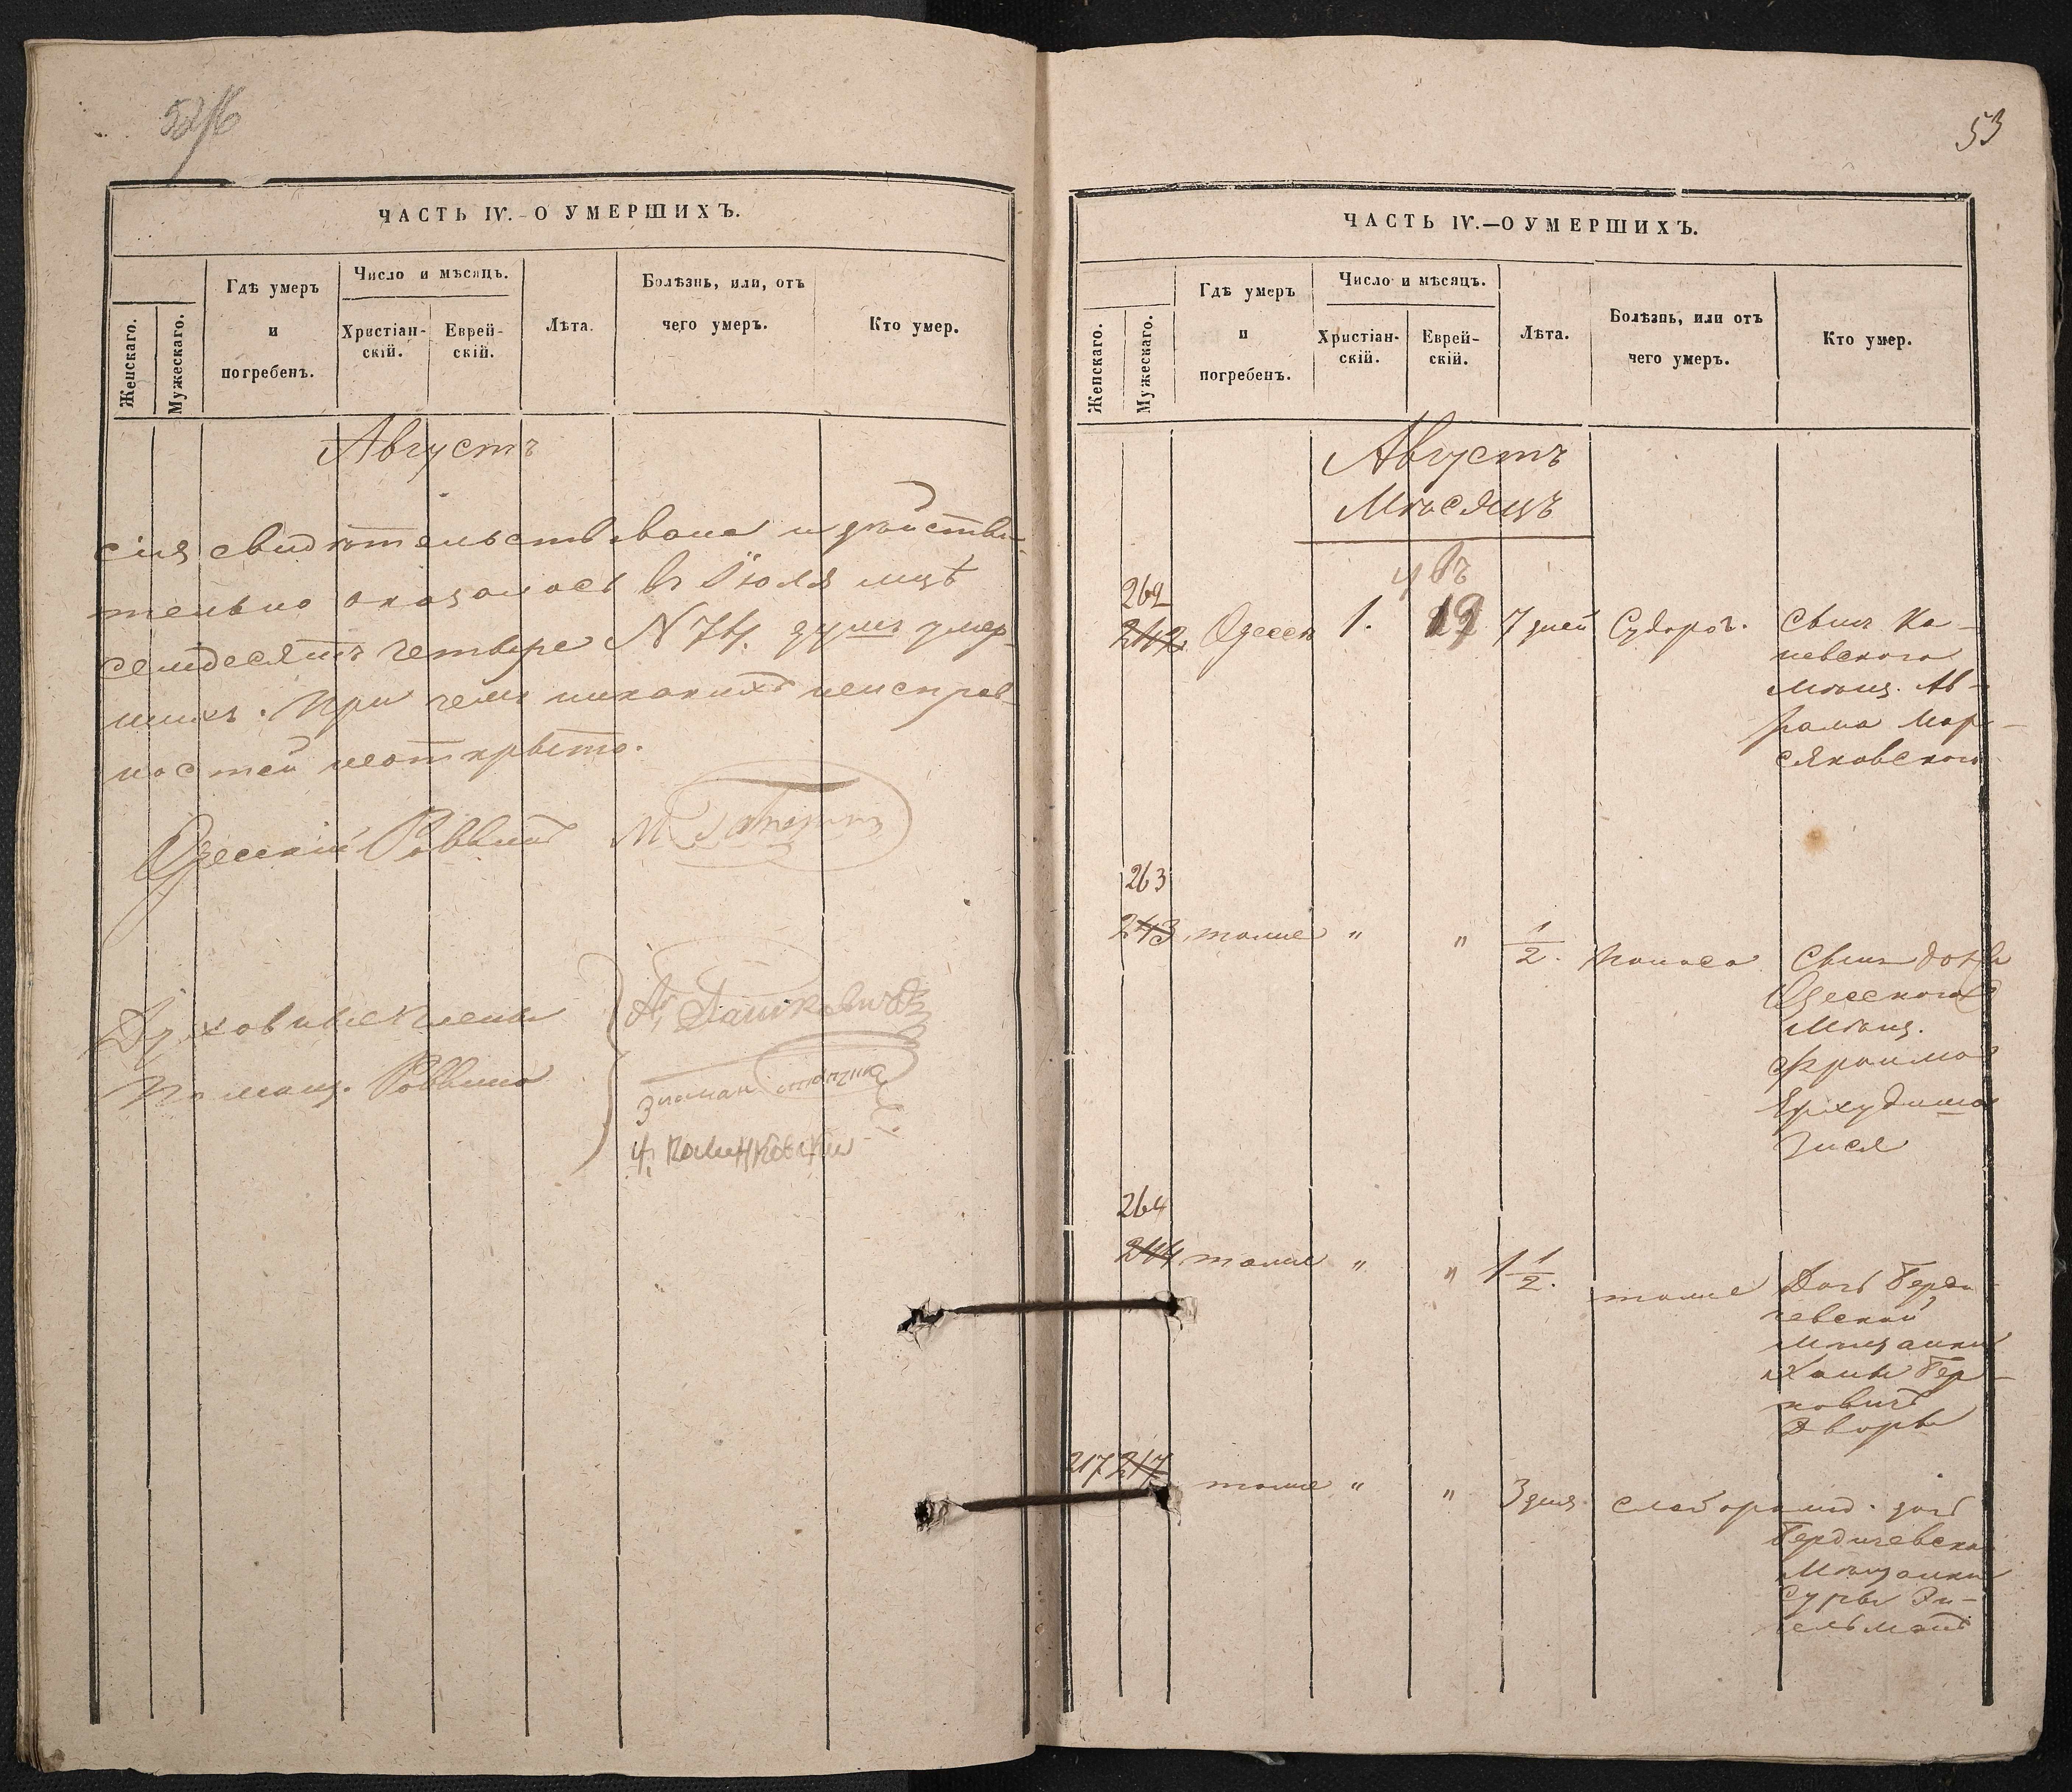 ЧАСТЬ IV.-О УМЕРШИХЪ.
Женскаго.
Мужескаго.
Гдѣ умеръ
и
погребенъ.
Число и мѣсяцъ.
Христіан-
скій.
Еврей-
скій.
Лѣта.
Болѣзнь, или, отъ
чего умеръ.
Кто умер.
Августъ
сія свидѣтельствована и дѣйстви-
тельно оказалось въ Іюля мцѣ
семдесятъ четыре N 74. душъ умер-
шихъ. При чемъ никакихъ неисправ-
ностей неоткрыто.
Одесскій Раввинъ
Духовные члены
Помощ. Раввина
53
ЧАСТЬ IV.—О УМЕРШИХЪ.
Женскаго.
Мужескаго.
Гдѣ умеръ
и
погребенъ.
Число и мѣсяцъ.
Христіан-
скій.
Еврей-
скій.
Лѣта.
Болѣзнь, или отъ
чего умеръ.
Кто умер.
Августъ
Мѣсяцъ
262
242 Одесса 1. 7 дней Судорог. Сынъ Ка-
невского
Мѣщ. Ав-
рама Мар-
сяковского
263
243 тоже " " 1/2. поноса Сынъ
Одесского
Мѣщ.
Фроима
264
244 тоже " " 1 1/2. тоже Дочь Берди
чевской
Мѣщанки
Ханы Бер-
ковичъ
Двора
217 217 тоже " " 3 дня слаборожд. дочь
Бердичевско
Мѣщанки
Суры